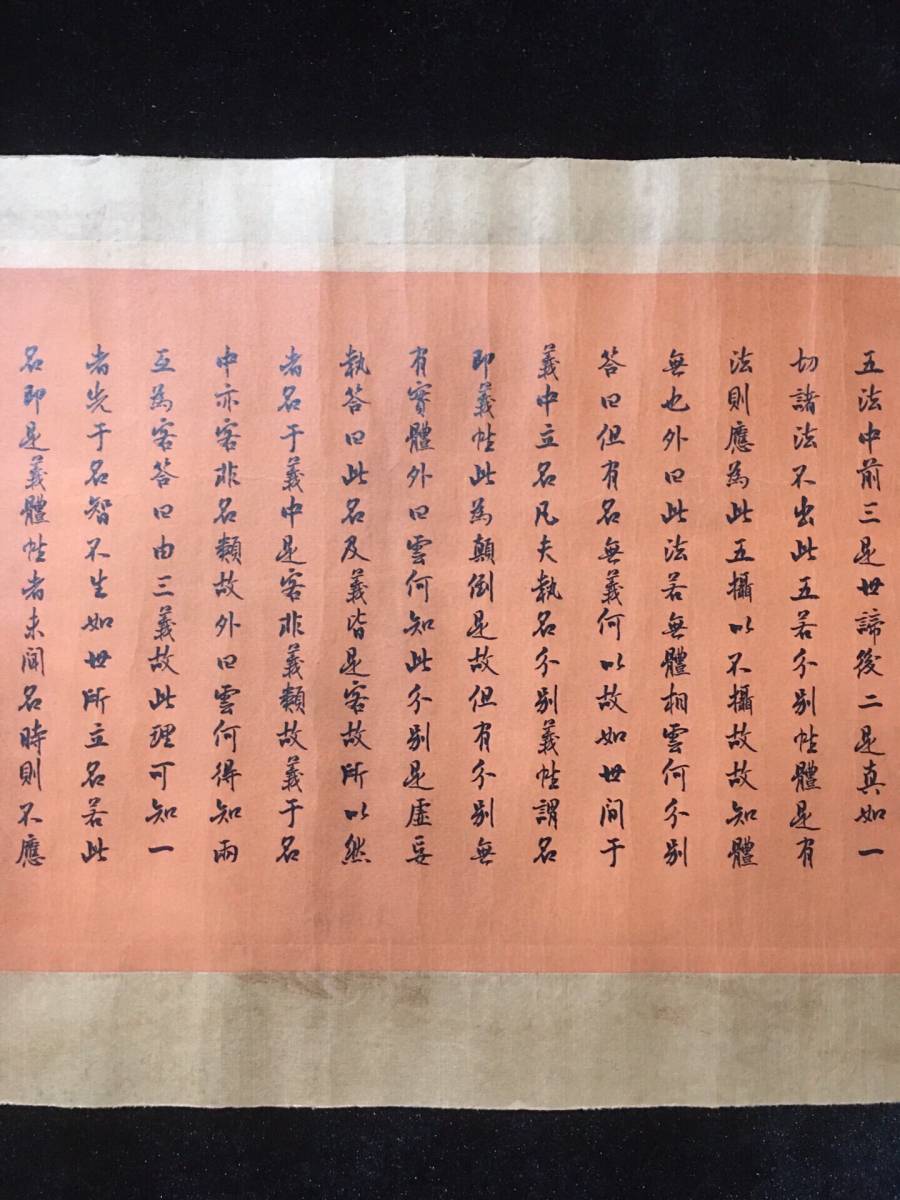 五法中前三是世諦後二是真如一
切諸法不出此五若分別性體是有
法則應為此五攝以不攝故故知體
無也外曰此法若無體相雲何分別
答曰但有名無義何以故如世間于
義中立名凡夫執名分別義性謂名
即義性此為顛倒是故但有分別無
有實體外曰雲何知此分別是虛妄
執答曰此名及義皆是客故所以然
者名于義中是客非義類故義于名
中亦客非名類故外曰雲何得知兩
互為客答曰由三義故此理可知一
者先于名智不生如世所立名若此
名即是義體性者未聞名時則不應